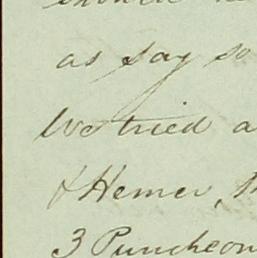 as say so
We tried a
& Hemer,
3 Puncheon